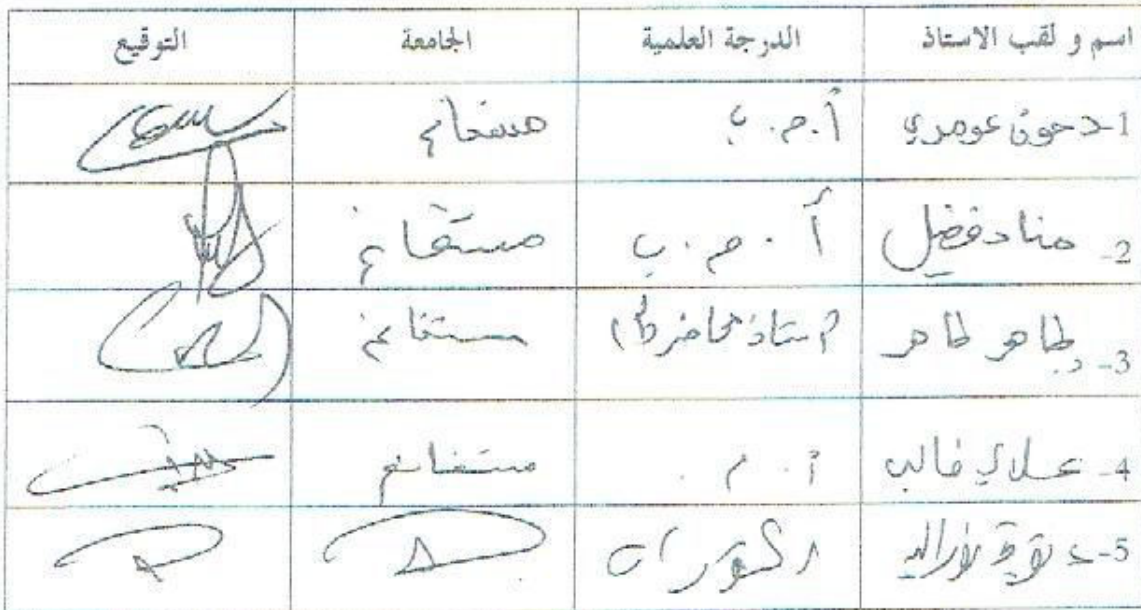 اسم و لقب الاستاذ الدرجة العلمية الجامعة التوقيع
1- دحون عومري أ.م.ب مستغانم
2- مناد فضيل أ.م.ب مستغانم
3- طاهر طاهر استاذ محاضر (أ) مستغانم
4- علالي غالب أ.م. مستغانم
5-